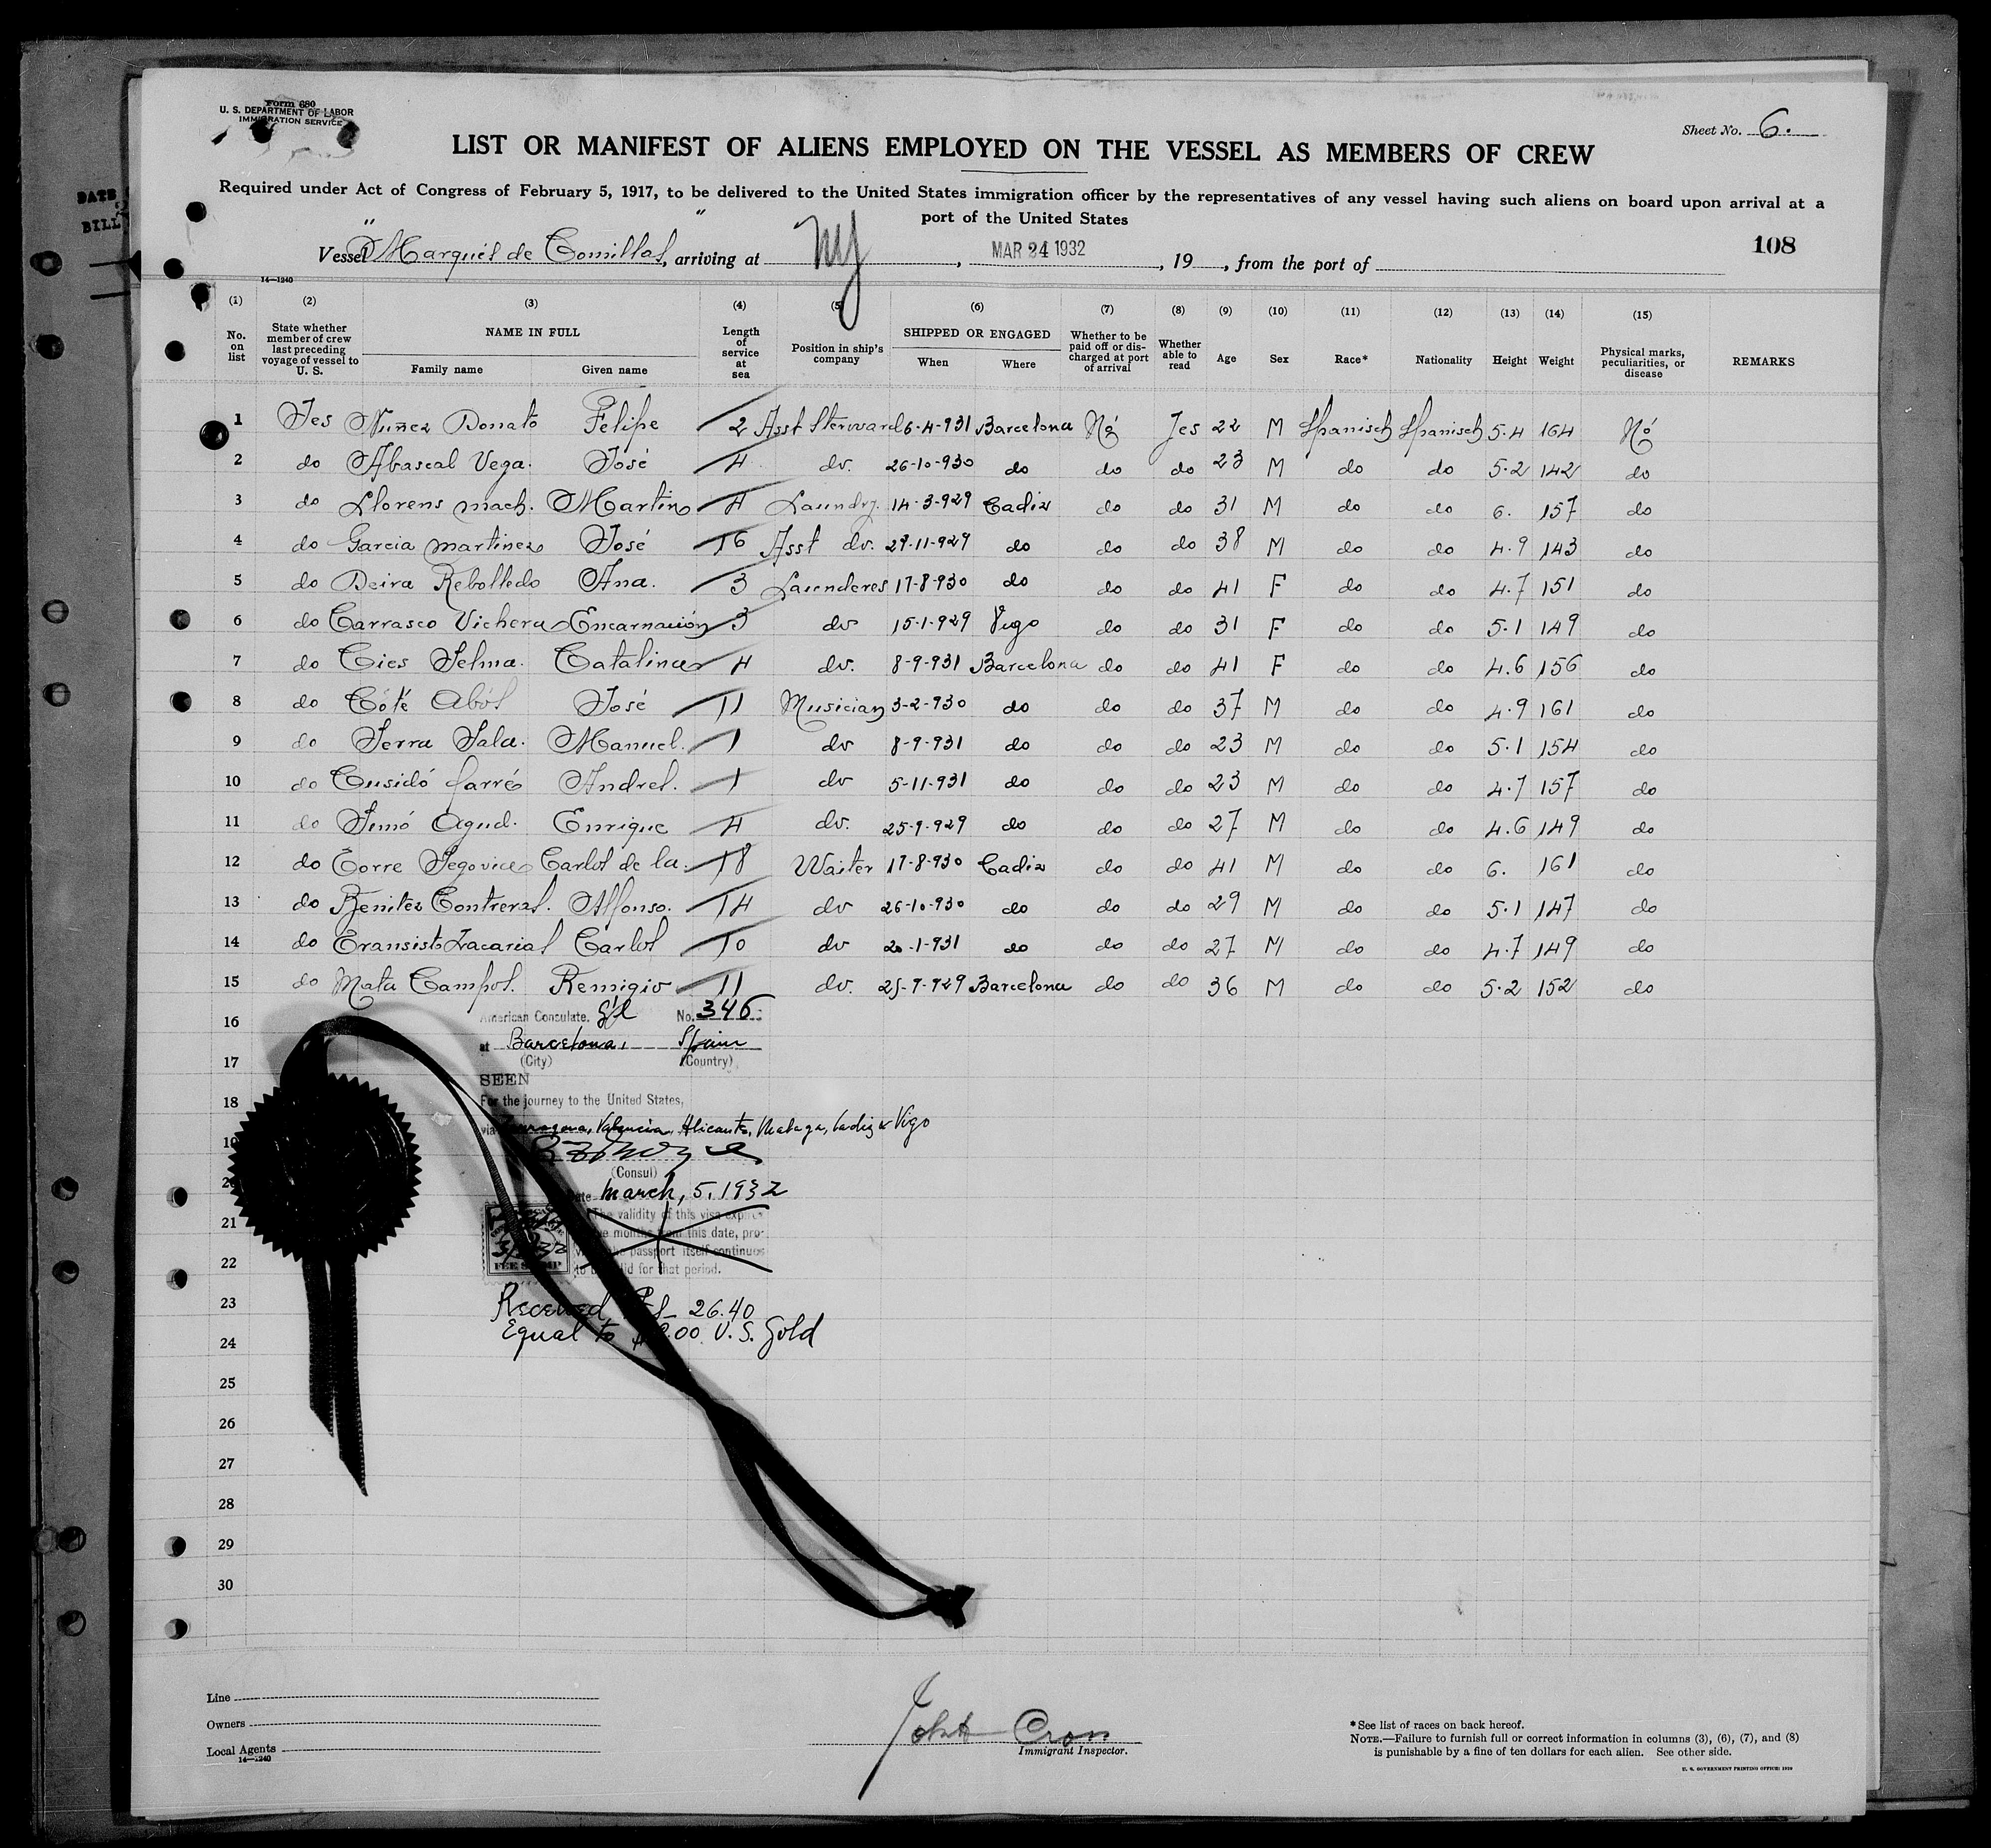 Form 680
U. S. DEPARTMENT OF LABOR
IMMIGRATION SERVICE
Sheet No. 6.
LIST OR MANIFEST OF ALIENS EMPLOYED ON THE VESSEL AS MEMBERS OF CREW
Required under Act of Congress of February 5, 1917, to be delivered to the United States immigration officer by the representatives of any vessel having such aliens on board upon arrival at a
port of the United States
DATE
BILL
108
Vessel "Marqués de Comillas", arriving at NY, MAR 24 1932, 19, from the port of
14—1240
(1) (2) (3) (4) (5) (6) (7) (8) (9) (10) (11) (12) (13) (14) (15)
No. on list State whether member of crew last preceding voyage of vessel to U. S. NAME IN FULL Family name Given name Length of service at sea Position in ship's company SHIPPED OR ENGAGED When Where Whether to be paid off or discharged at port of arrival Whether able to read Age Sex Race* Nationality Height Weight Physical marks, peculiarities, or disease REMARKS
1 Yes Nuñez Donato Felipe 2 Asst Sterward 6-4-931 Barcelona Nó Jes 22 M Spanisch Spanisch 5.4 164 Nó
2 do Abascal Vega. José 4 do. 26-10-930 do do do 23 M do do 5.2 142 do
3 do Llorens mach. Martin 4 Laundry. 14-3-929 Cadiz do do 31 M do do 6. 157 do
4 do Garcia martinez José 16 Asst do. 29-11-929 do do do 38 M do do 4.9 143 do
5 do Deira Rebolledo Ana. 3 Launderes 17-8-930 do do do 41 F do do 4.7 151 do
6 do Carrasco Vichera Encarnación 3 do 15-1-929 Vigo do do 31 F do do 5.1 149 do
7 do Cies Selma. Catalina 4 do. 8-9-931 Barcelona do do 41 F do do 4.6 156 do
8 do Cóté Abós José 11 Musician 3-2-930 do do do 37 M do do 4.9 161 do
9 do Serra Sala. Manuel. 1 do 8-9-931 do do do 23 M do do 5.1 154 do
10 do Cusidó farré Andres. 1 do 5-11-931 do do do 23 M do do 4.7 157 do
11 do Simó Agud. Enrique 4 do. 25-9-929 do do do 27 M do do 4.6 149 do
12 do Torre Segovia Carlos de la. 18 Waiter 17-8-930 Cadiz do do 41 M do do 6. 161 do
13 do Benitez Contreras. Alfonso. 14 do 26-10-930 do do do 29 M do do 5.1 147 do
14 do Eransisto Zacarias Carlos 10 do 20-1-931 do do do 27 M do do 4.7 149 do
15 do Mata Campos. Remigio 11 do. 25-9-929 Barcelona do do 36 M do do 5.2 152 do
16
American Consulate. Gl No. 346
at Barcelona, Spain
17
(City) (Country)
SEEN
18
For the journey to the United States,
via Valencia, Alicante, Malaga, Cadiz & Vigo
19
(Consul)
20
Date March, 5, 1932
21
The validity of this visa expires
months from this date, pro-
the passport itself continues
22
to be valid for that period.
FEE STAMP
23
Received Pts 26.40
Equal to $2.00 U. S. Gold
24
25
26
27
28
29
30
Line
Owners
Local Agents
14—1240
John Cron
Immigrant Inspector.
*See list of races on back hereof.
NOTE.—Failure to furnish full or correct information in columns (3), (6), (7), and (8)
is punishable by a fine of ten dollars for each alien. See other side.
U. S. GOVERNMENT PRINTING OFFICE: 1929